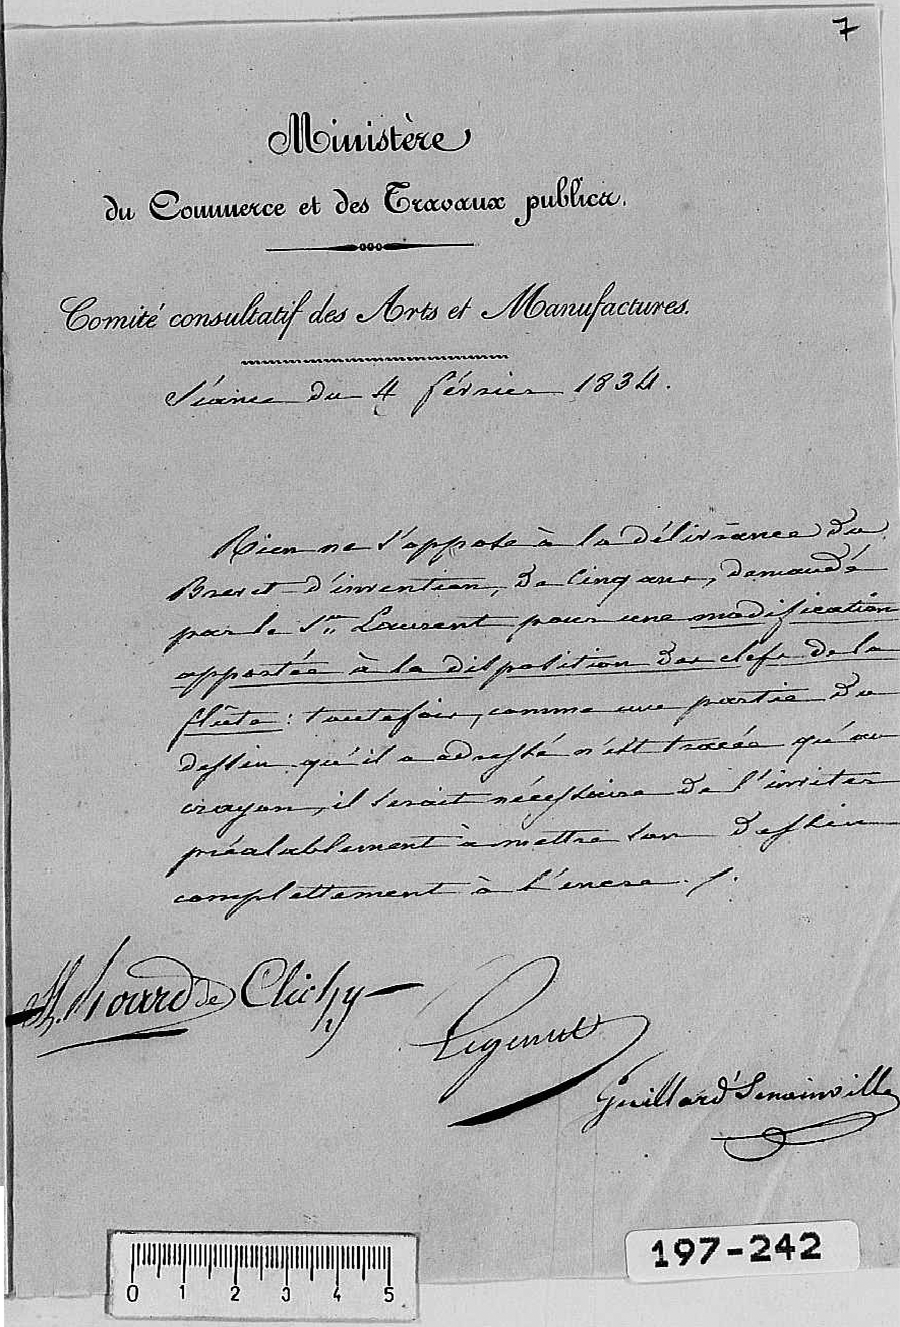 7
Ministère
du Commerce et des Travaux publics.
Comité consultatif des Arts et Manufactures.
Séance du 4 février 1834.
Rien ne s'oppose à la délivrance du
Brevet d'invention, de cinq ans, demandé
par le Sr. Laurent pour une modification
apportée à la disposition des clefs de la
flûte : toutefois, comme une partie du
dessin qu'il a adressé n'est tracée qu'au
crayon, il serait nécessaire de l'inviter
préalablement à mettre son dessin
complettement à l'encre ./.
de Clichy
Guillard Senainville
0 1 2 3 4 5
197-242